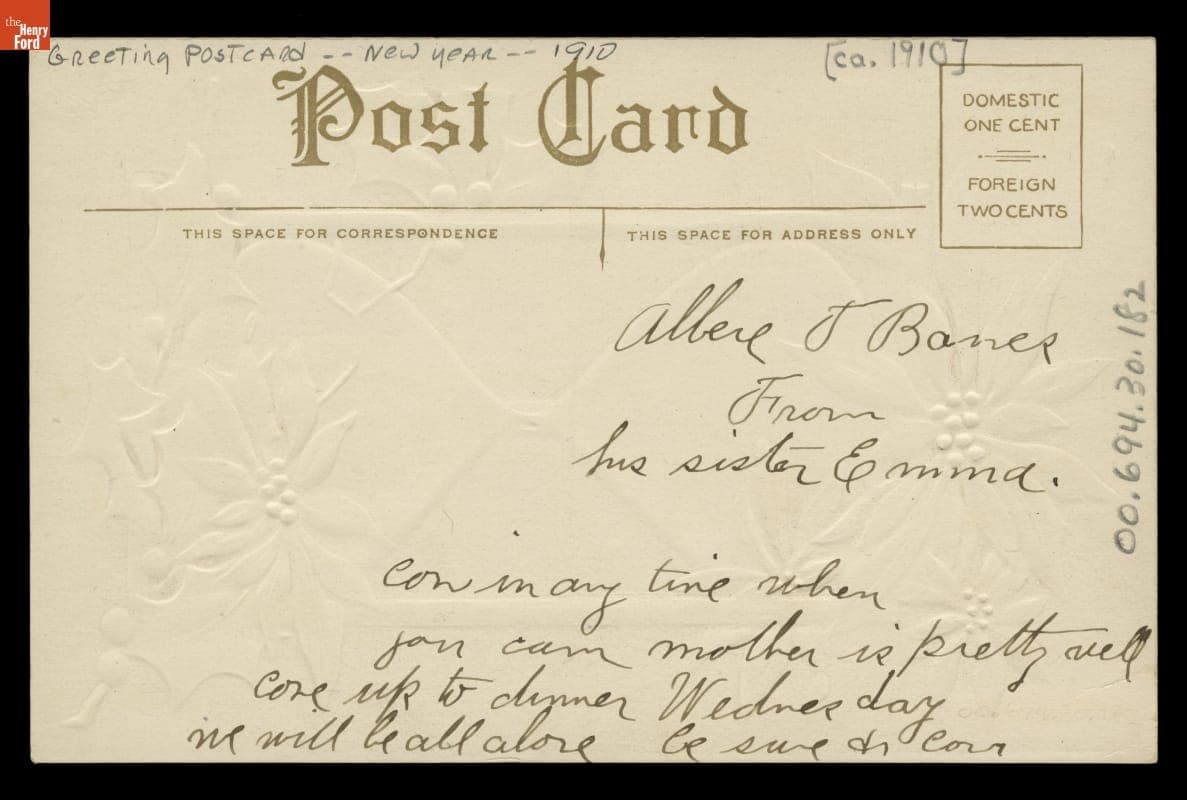 the Henry Ford
Greeting Postcard -- New Year -- 1910
[ca. 1910]
Post Card
DOMESTIC
ONE CENT
FOREIGN
TWO CENTS
THIS SPACE FOR CORRESPONDENCE
THIS SPACE FOR ADDRESS ONLY
Albert T Banes
From
his sister Emma.
00.694.30.182
com in any time when
you cam mother is pretty well
come up to dinner Wednesday
we will be all alone be sure &